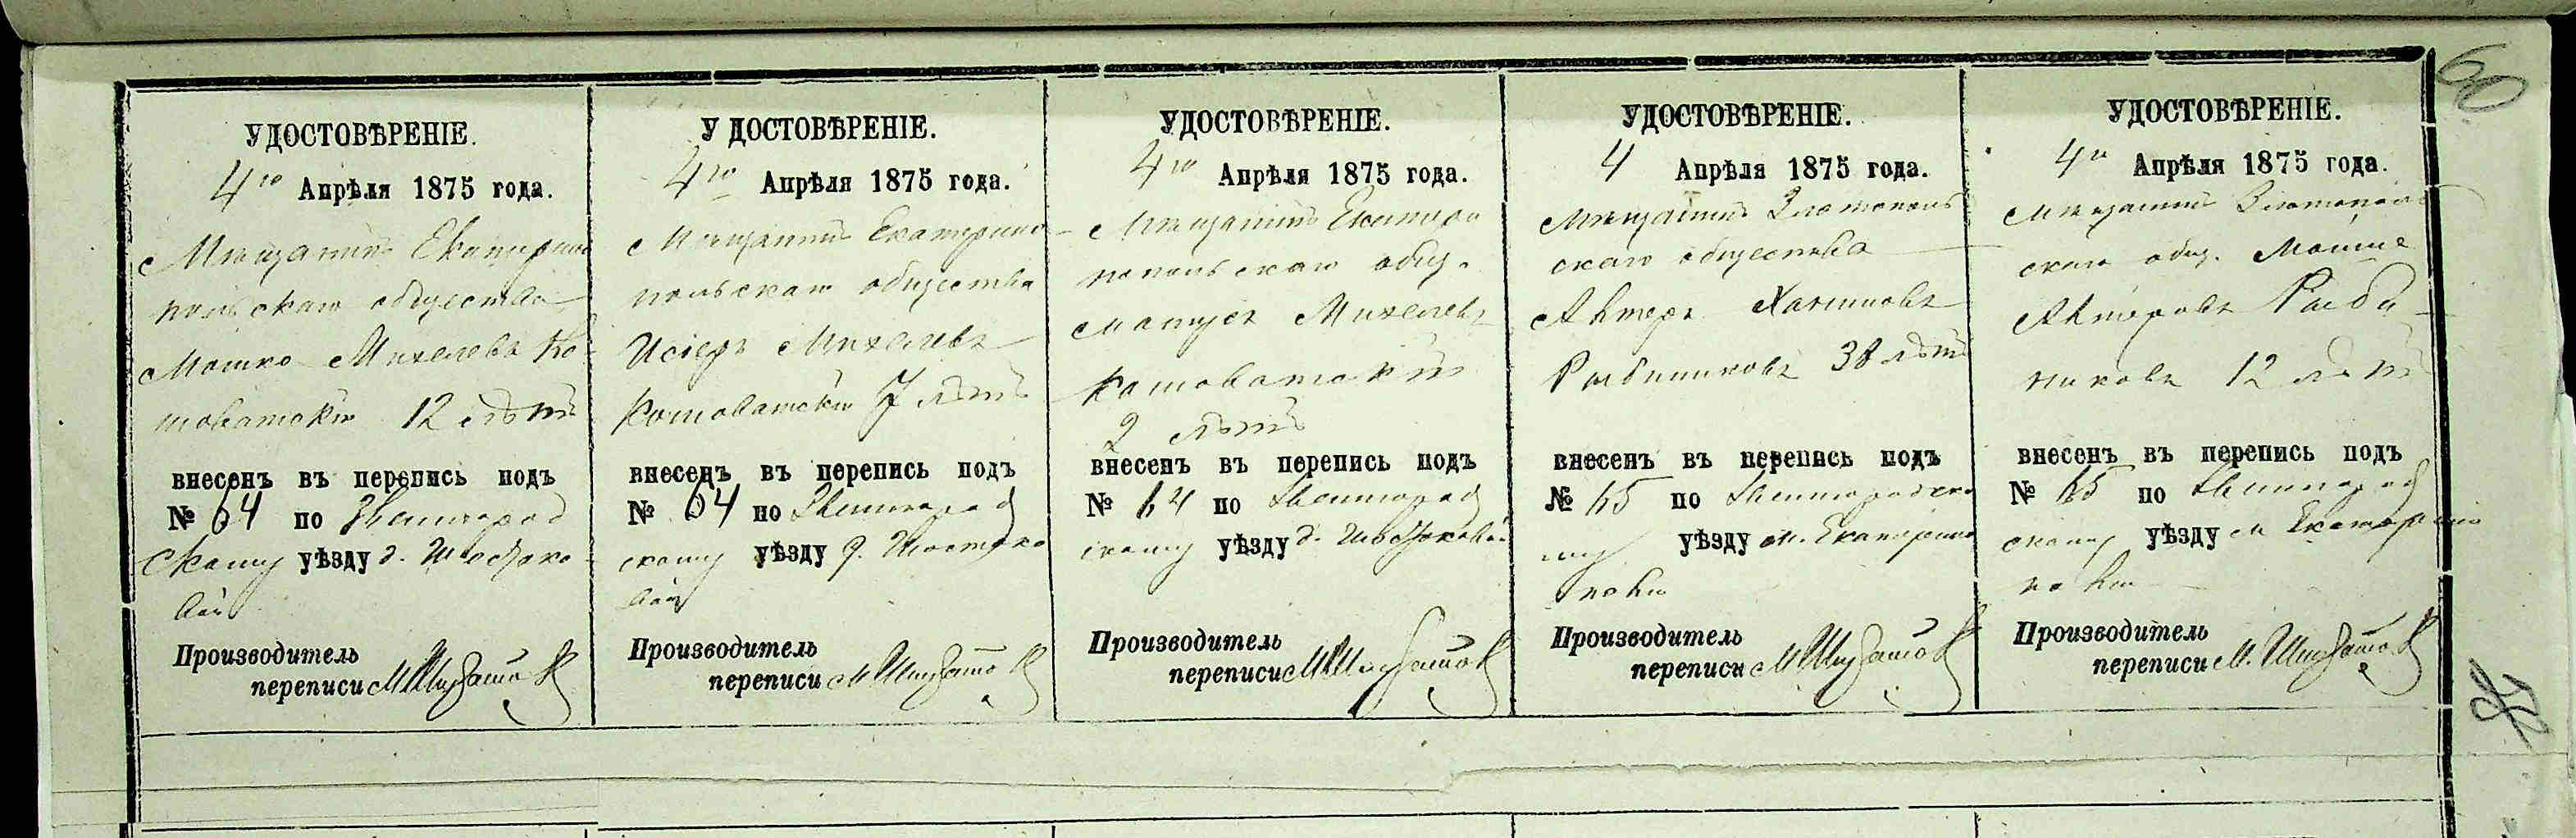 60
УДОСТОВѢРЕНІЕ.
4го Апрѣля 1875 года.
Мѣщанинъ Екатерино
польскаго общества
Мошко Михелевъ Ко-
шоватскій 12 лѣтъ
внесенъ въ перепись подъ
№ 64 по Звенигород
скому уѣзду д.
вай
Производитель
переписи
УДОСТОВѢРЕНІЕ.
4го Апрѣля 1875 года.
Мѣщанинъ Екатерино-
польскаго общества
Исіеръ Михелевъ
Кошоватскій 7 лѣтъ
внесенъ въ перепись подъ
№ 64 по Звенигород
скому уѣзду д.
вай
Производитель
переписи
УДОСТОВѢРЕНІЕ.
4го Апрѣля 1875 года.
Мѣщанинъ Екатери
нопольскаго общ.
Михелевъ
Кошоватскій
2 лѣтъ
внесенъ въ перепись подъ
№ 64 по Звенигород
скому уѣзду д.
Производитель
переписи
УДОСТОВѢРЕНІЕ.
4 Апрѣля 1875 года.
Мѣщанинъ Златополь
скаго общества
Ахтеръ Хаимовъ
Рыбниковъ 38 лѣтъ
внесенъ въ перепись подъ
№ 65 по Звенигородско
му уѣзду м. Екатерино
поки
Производитель
переписи
УДОСТОВѢРЕНІЕ.
4го Апрѣля 1875 года.
Мѣщанинъ Златополь
скаго общ. Мошие
Ахтеровъ Рыб
никовъ 12 лѣтъ
внесенъ въ перепись подъ
№ 65 по Звенигород
скому уѣзду м Екатерино
поки
Производитель
переписи